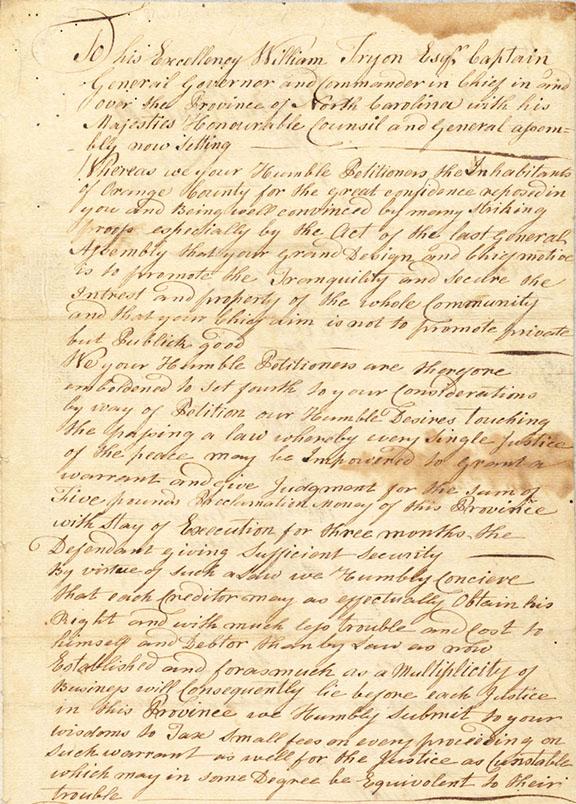 To his Excellency William Tryon Esqr. Captain
General Governor and Commander in Chief in and
over the Province of North Carolina with his
Majesties Honourable Counsil and General assem-
bly now Sitting
Whereas we your Humble Petitioners the Inhabitants
of Orange County for the great confidence reposed in
you and Being well convinced by many striking
proofs especially by the Act of the last General
Assembly that your Grand Design and Chief motive
is to promote the Tranquility and secure the
Intrest and property of the whole Community
and that your Chief aim is not to promote private
but Publick good
We your Humble Petitioners are therfore
emboldened to set fourth to your Considerations
by way of Petition our Humble Desires touching
the passing a law whereby every single Justice
of the peace may be Impowered to grant a
warrant and give Judgment for the sum of
Five pounds Proclamation Money of this Province
with Stay of Execution for three months the
Defendant giving Sufficient security
By virtue of such a Law we Humbly Concieve
that each Creditor may as effectually Obtain his
Right and with much less trouble and Cost to
himself and Debtor than by Law as now
Established and forasmuch as a Multiplicity of
Business will Consequently lie before each Justice
in this Province we Humbly submit to your
wisdoms to Tax small fees on every proceeding on
such warrant as well for the Justice as Constable
which may in some Degree be Equivalent to their
trouble